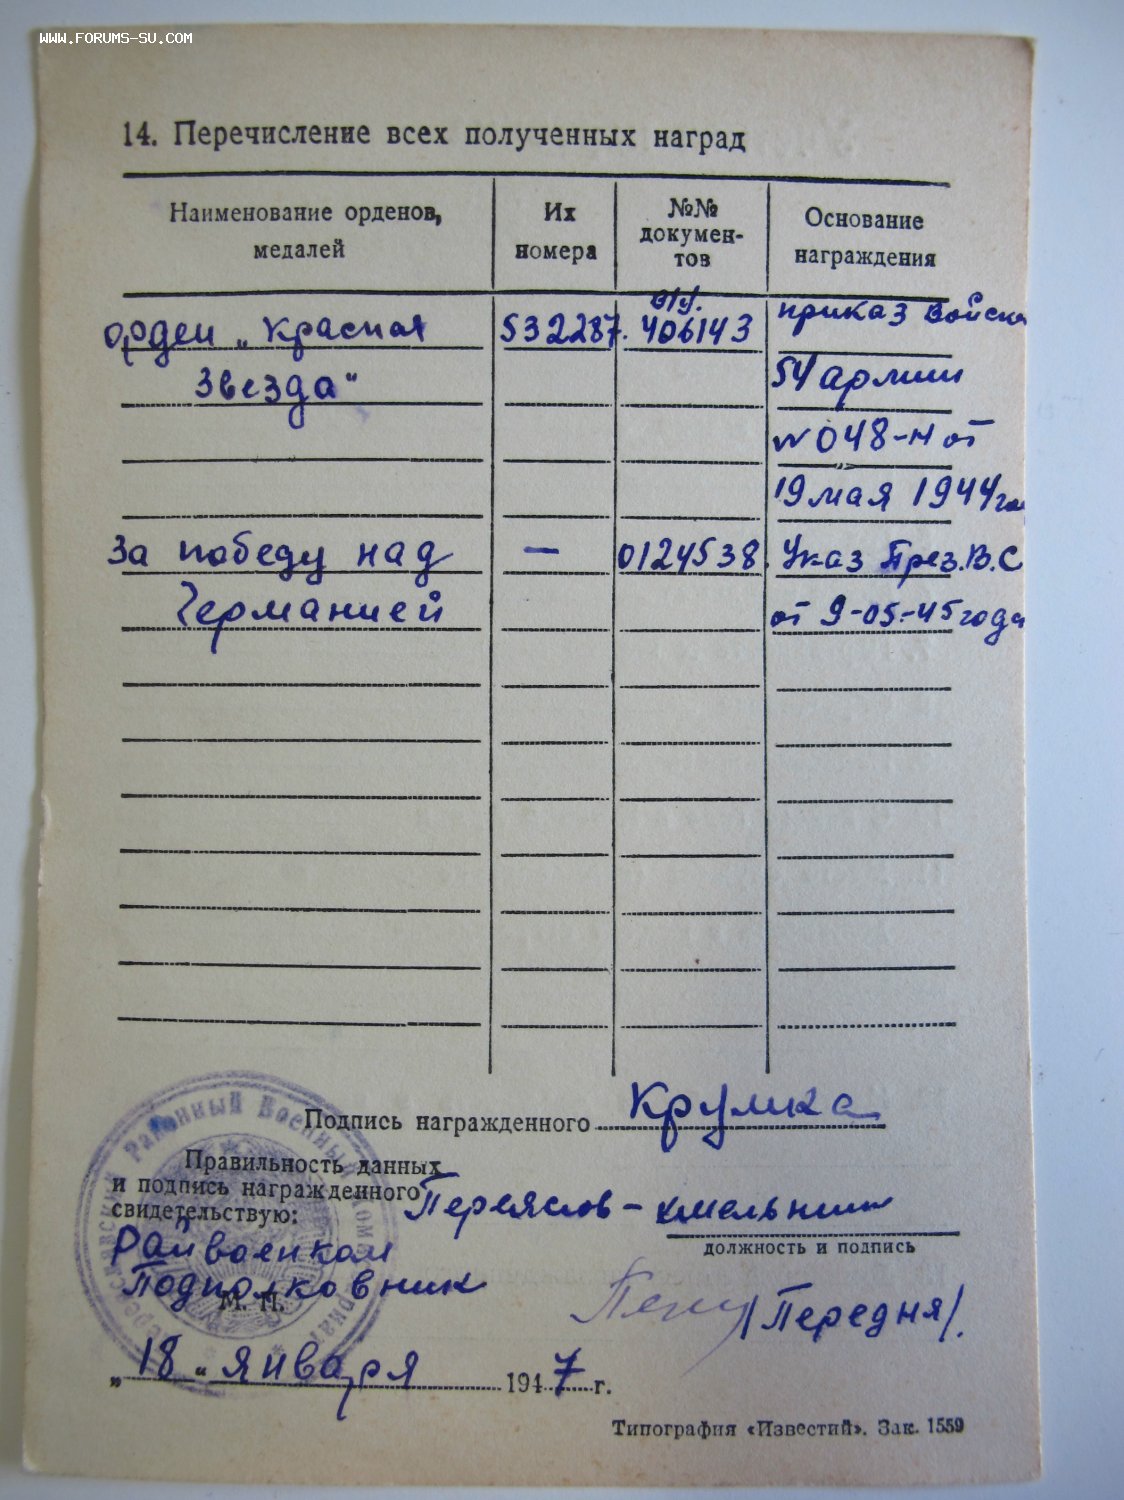 WWW.FORUMS-SU.COM
14. Перечисление всех полученных наград
Наименование орденов, медалей
Их номера
№№ докумен-тов
Основание награждения
орден „Красная 532287. 406143 приказ Войска
Звезда“ 54 армии
№ 048-н от
19 мая 1944
За победу над — 0124538. Указ През. В. С
Германией от 9-05-45 года
Подпись награжденного Крулика
Правильность данных
и подпись награжденного
свидетельствую:
Переяслов-хмельник
должность и подпись
Райвоенком
Подполковник
М. П.
/Передня/.
„18“ января 1947 г.
Районный Военный
Типография «Известий». Зак. 1559